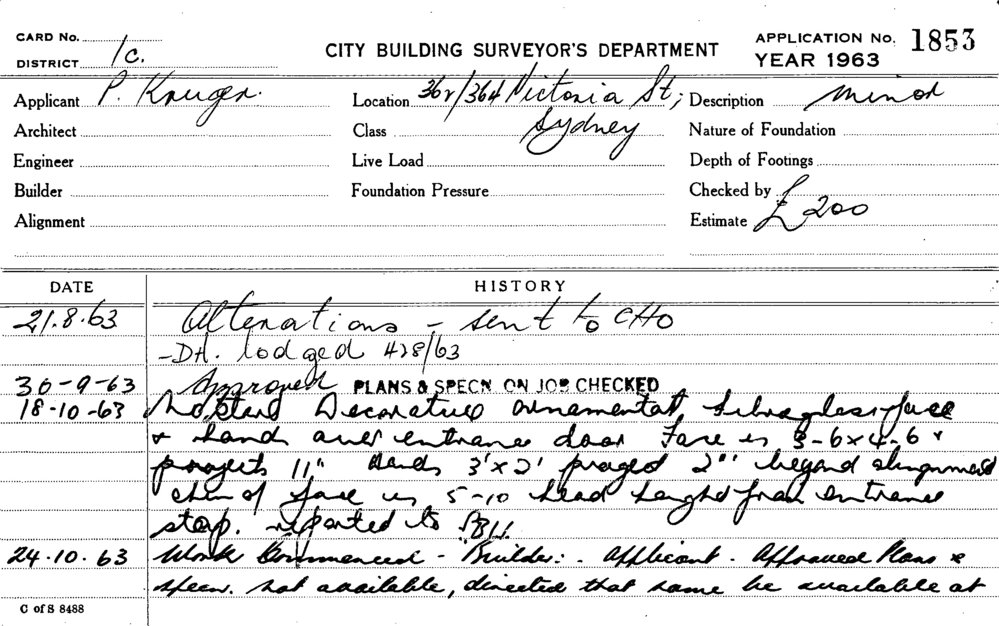 CARD No.
DISTRICT 1c.
CITY BUILDING SURVEYOR'S DEPARTMENT
APPLICATION No. 1853
YEAR 1963
Applicant P. Kruger.
Location 362/364 Victoria St; Sydney
Description minor
Architect
Class
Nature of Foundation
Engineer
Live Load
Depth of Footings
Builder
Foundation Pressure
Checked by
Alignment
Estimate £200
DATE HISTORY
21.8.63 Alterations - sent to CHO
-DA. lodged 428/63
30-9-63 Approved PLANS & SPECN. ON JOB CHECKED
18-10-63 Decorative ornamental fibreglass face
& hands over entrance door Face is 3-6x4-6 &
projects 11" Hands 3'x2' 2"' beyond alignment
chin of face is 5-10 head height from entrance
step. reported to
24.10.63 Work Commenced - Builder:- Applicant. Approved Plans &
specn. not available, directed that same be available at
C of S 8488